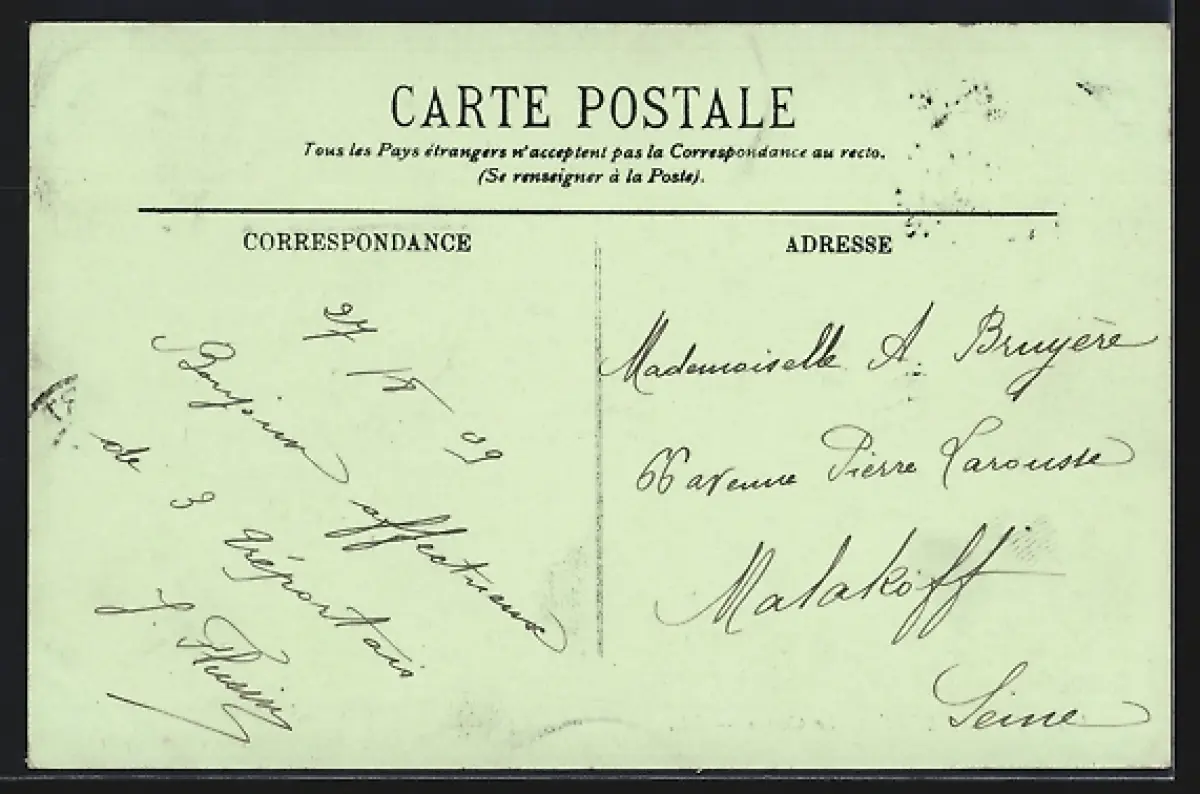 CARTE POSTALE
Tous les Pays étrangers n'acceptent pas la Correspondance au recto.
(Se renseigner à la Poste).
CORRESPONDANCE
ADRESSE
09
Bonjour affectueux
de 3 tréportais
Mademoiselle A. Bruyère
66 avenue Pierre Larousse
Malakoff
Seine